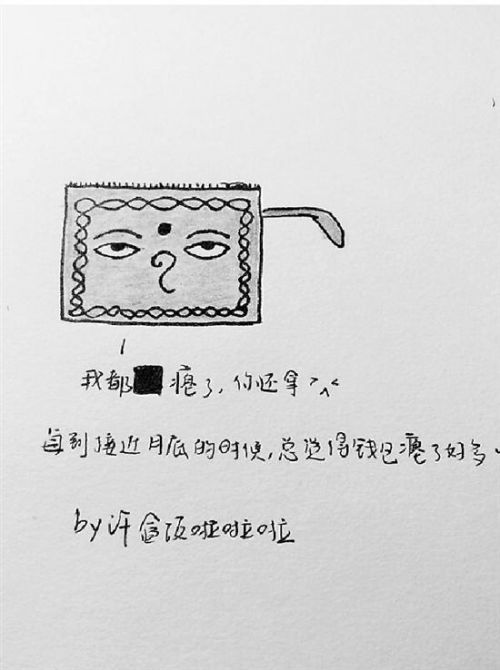 我都瘪了，你还拿>^<
每到接近月底的时候，总觉得钱包瘪了好多、
by 许盒饭啦啦啦